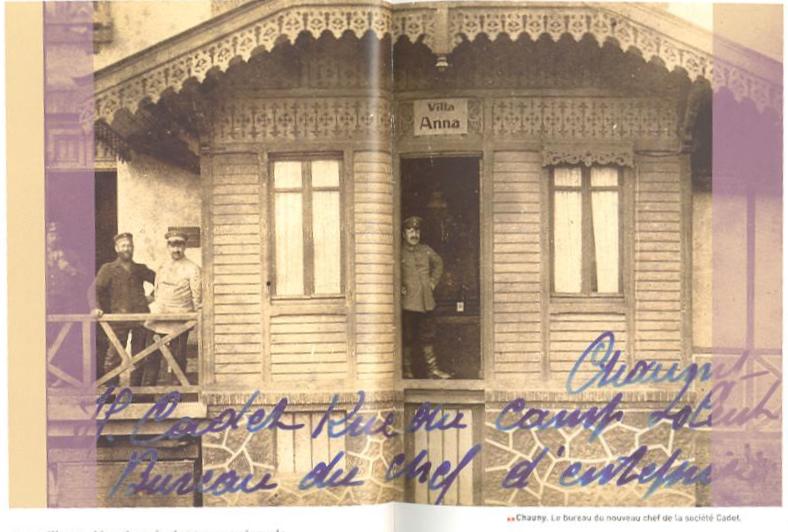 Villa
Anna
Chauny
H. Cadet Rue du camp
Bureau du chef d'entepri
Chauny. Le bureau du nouveau chef de la société Cadet.